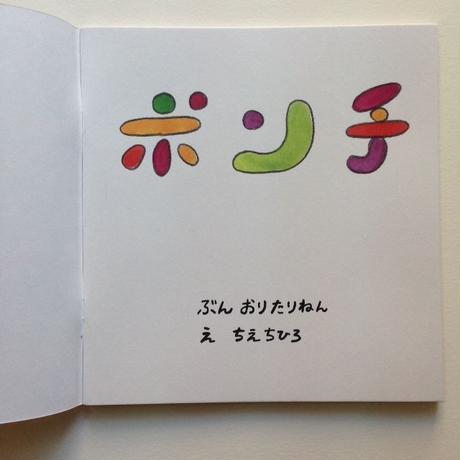 ポンチ
ぶん おりたりねん
え ちえちひろ